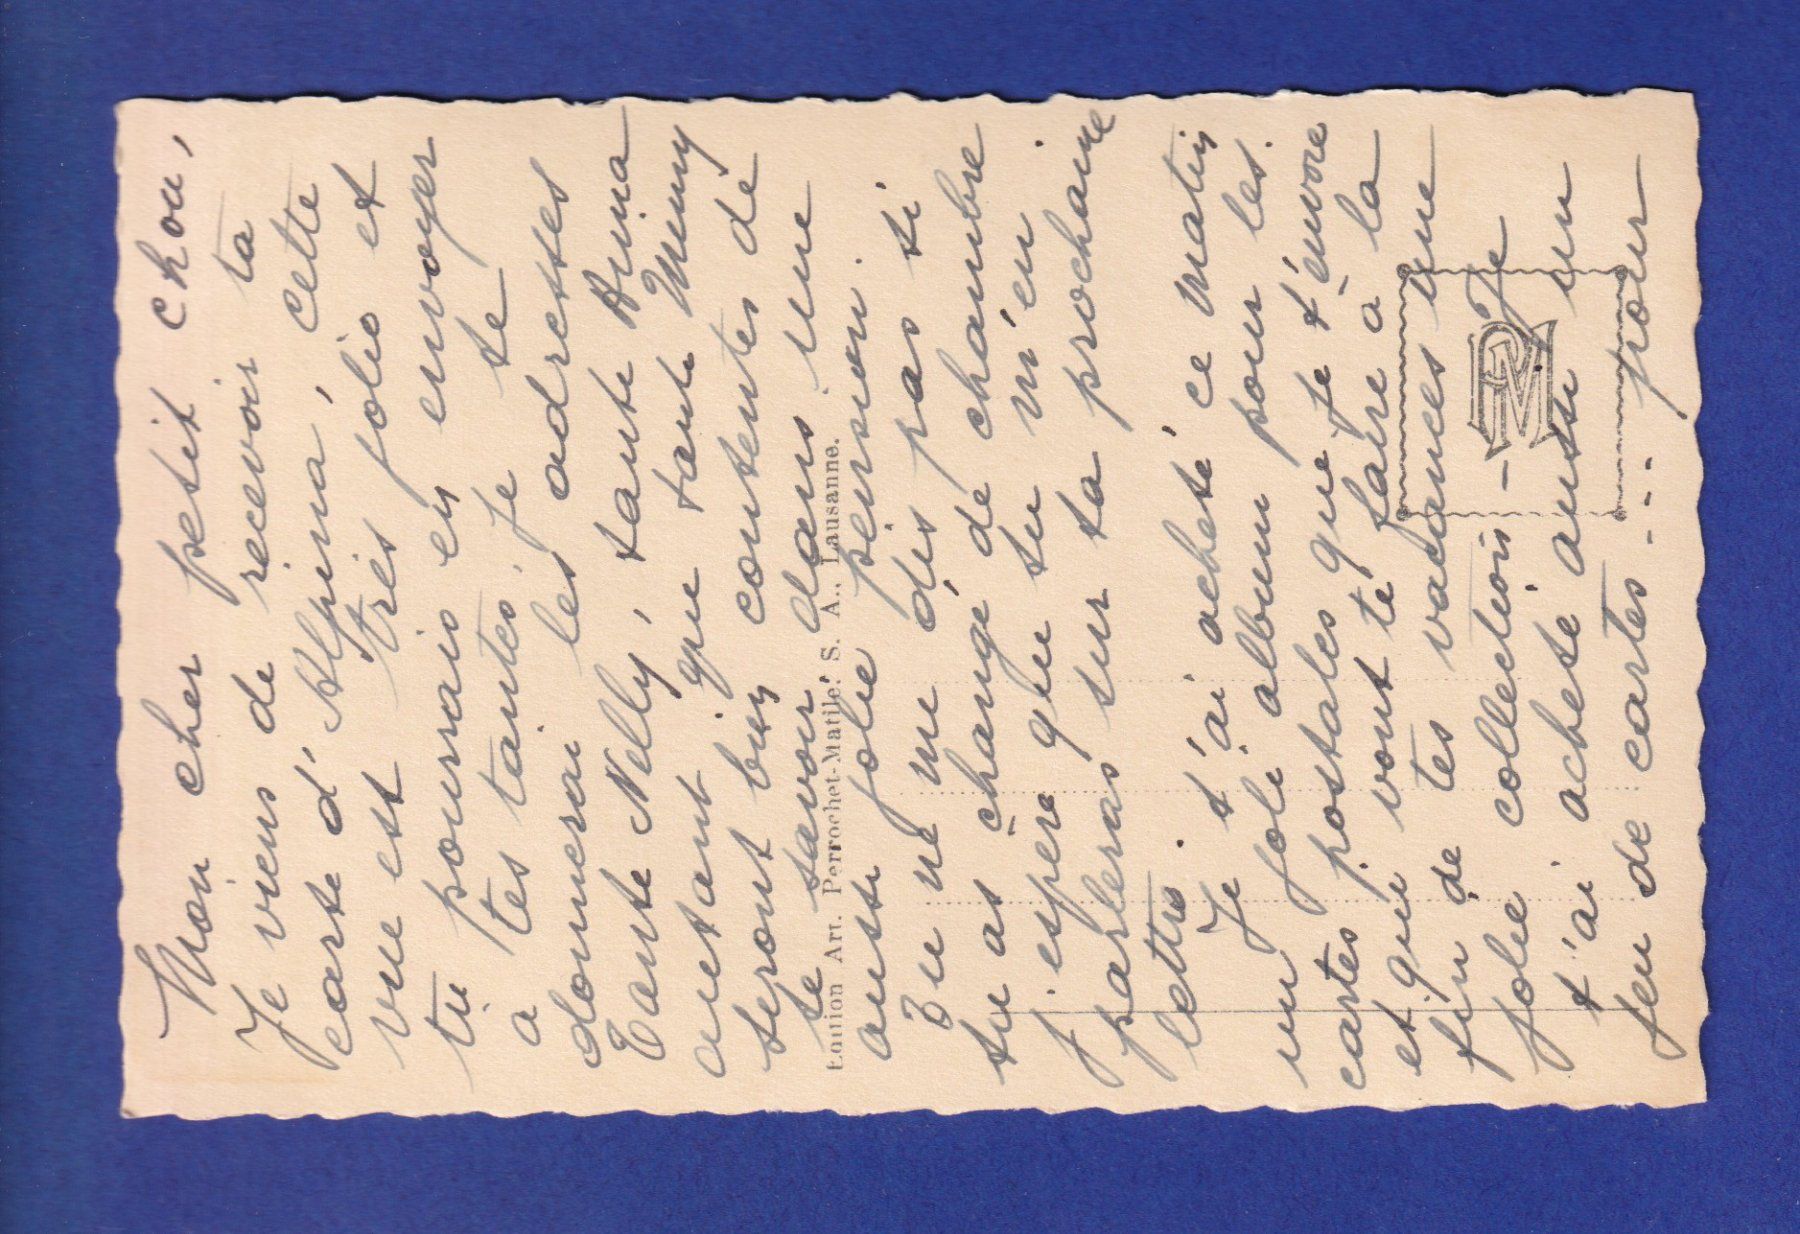 Mon cher petit chou,
Je viens de recevoir ta
carte d'Alpina, cette
vue est très jolie et
tu pourrais en envoyer
à tes tantes. Je te
donnerai les adresses
Tante Nelly, tante Anna
autant que tante Mimy
seront bien contentes de
te savoir dans une
aussi jolie pension.
Tu ne me dis pas si
tu as changé de chambre
j'espère que tu m'en
parleras sur ta prochaine
lettre.
Je t'ai acheté ce matin
un joli album pour les
cartes postales que je t'envoie
et qui vont te faire à la
fin de tes vacances une
jolie collection - Je
t'ai acheté aussi un
jeu de cartes ... pour
Edition Art. Perrochet-Matile, S. A., Lausanne.
PM